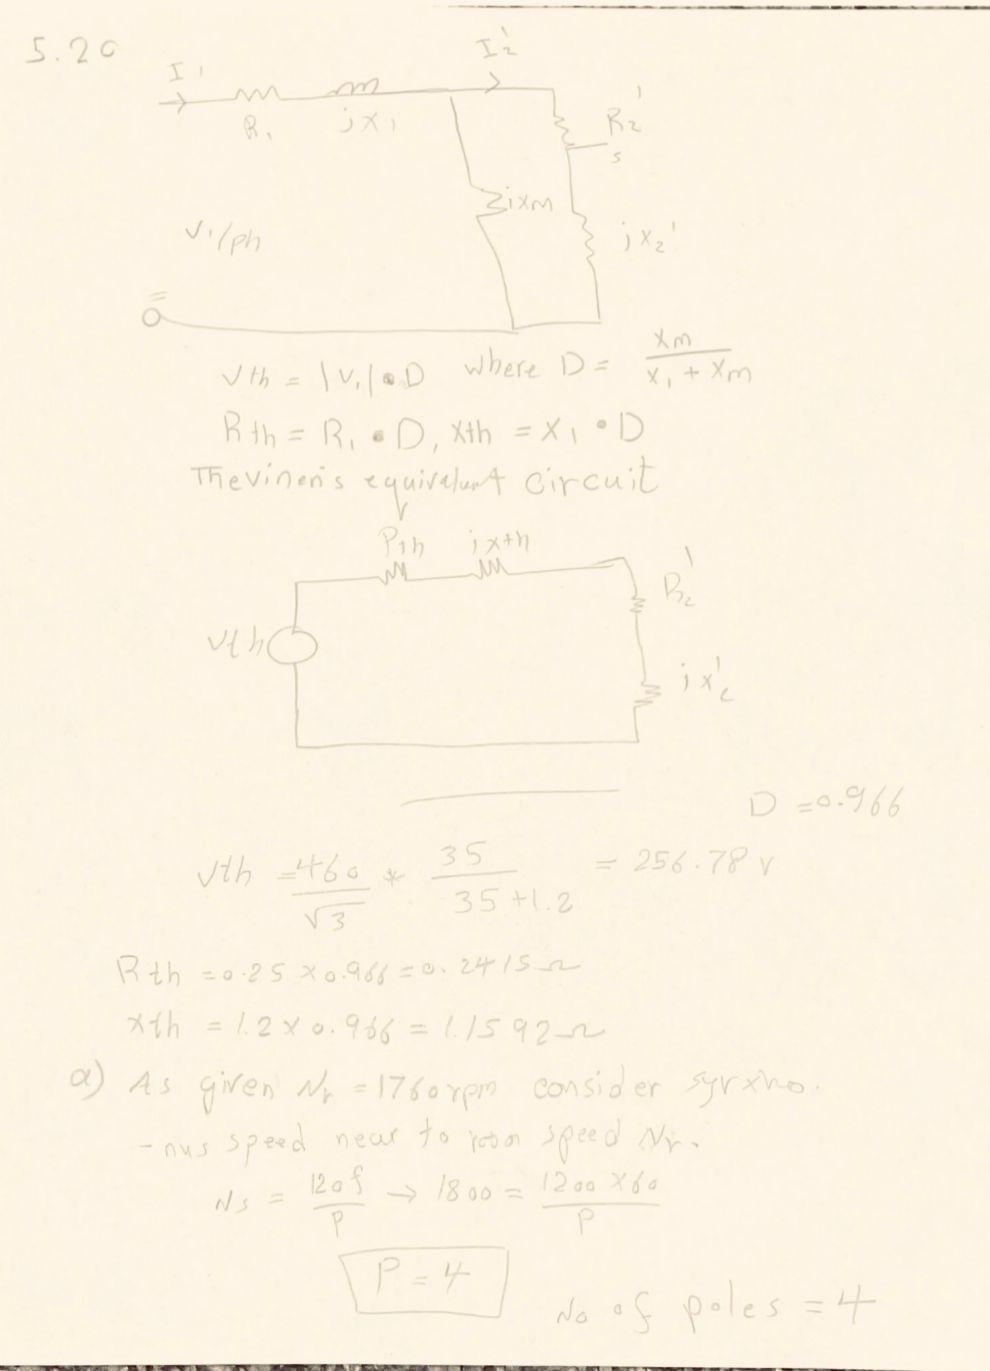 5.20
I1
I2'
R1
jx1
R2'
s
jxm
jx2'
V1/ph
Vth = |V1| • D where D = xm / x1 + xm
Rth = R1 • D, xth = x1 • D
Thevinen's equivalent circuit
Rth jxth
R2'
Vth
jx2'
D = 0.966
Vth = 460/√3 * 35 / 35+1.2 = 256.78 V
Rth = 0.25 x 0.966 = 0.2415 Ω
xth = 1.2 x 0.966 = 1.1592 Ω
a) As given Nr = 1760 rpm consider synchro.
-nus speed near to speed Nr.
Ns = 120f / P → 1800 = 1200 x 60 / P
P = 4
No of poles = 4